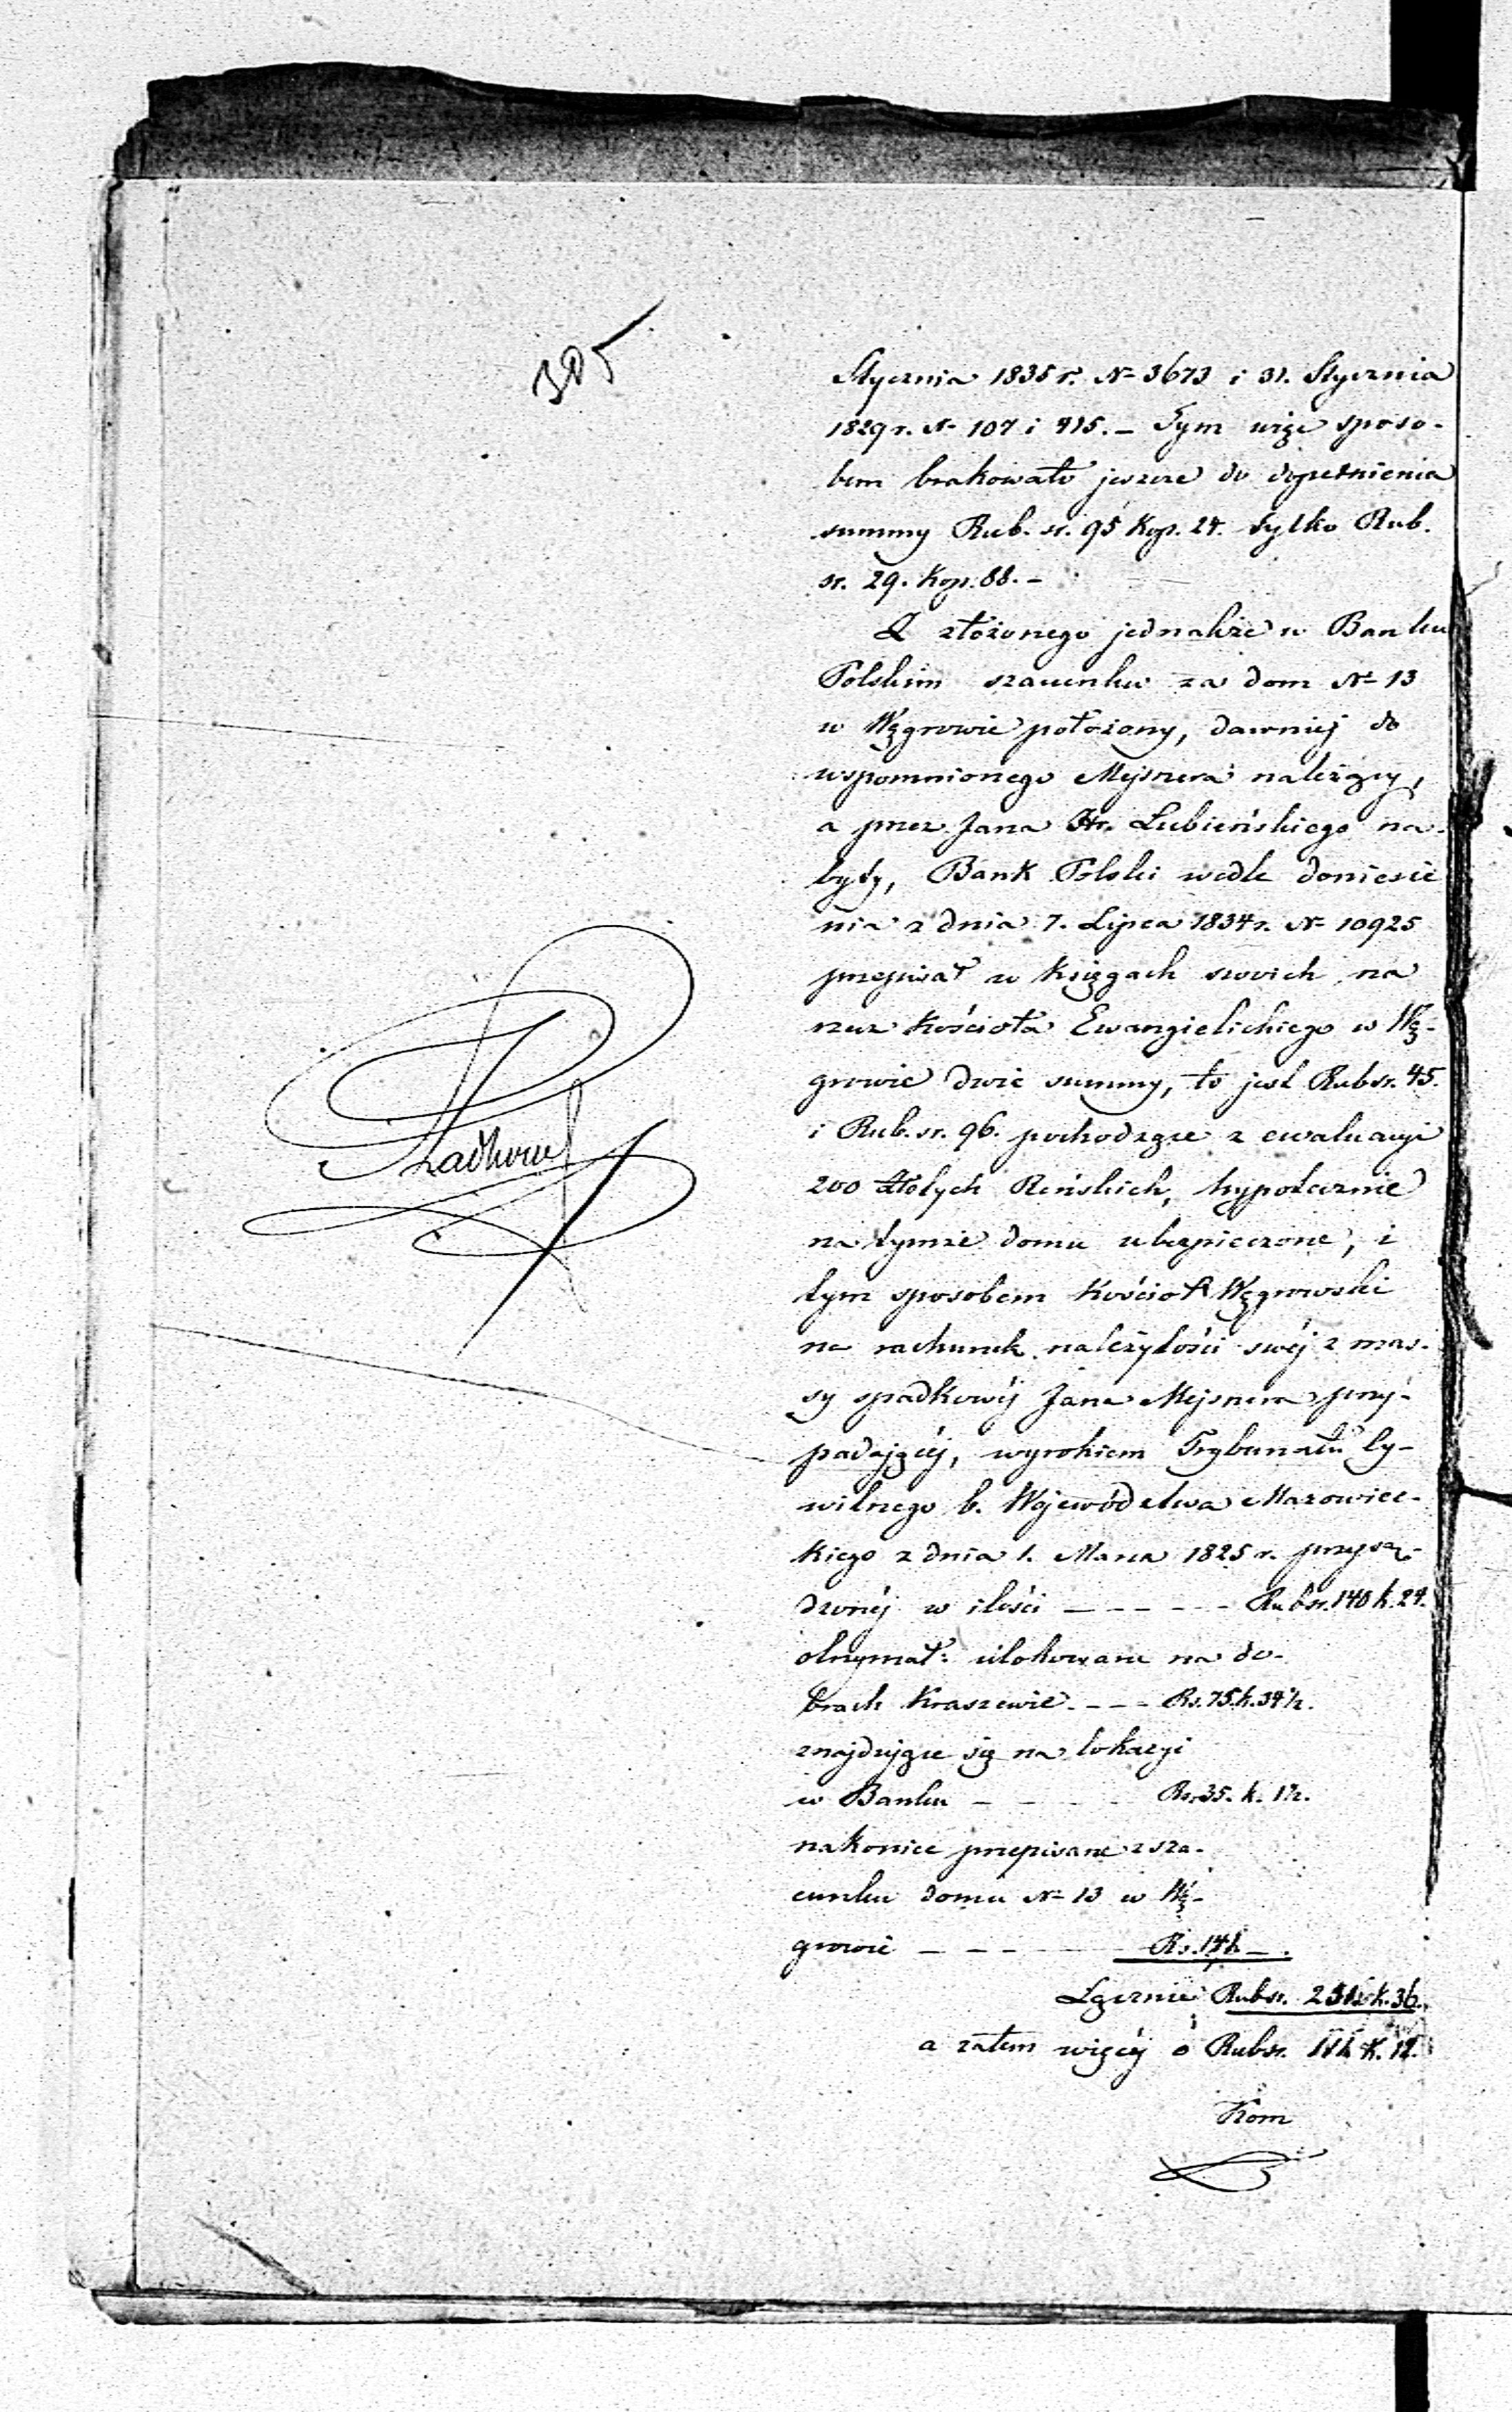 305
Stycznia 1835 r. N= 3673 i 31. Stycznia
1829 r. N- 107 i 415. – Tym więc sposo-
bem brakowało jeszcze do dopełnienia
summy Rub. sr. 95 Kop. 24. tylko Rub.
sr. 29. Kop. 88. –
Z złożonego jednakże w Banku
Polskim szacunku za dom N= 13
w Węgrowie położony, dawniej do
wspomnionego Mejsnera należący,
a przez Jana Hr. Łubieńskiego na-
byty, Bank Polski wedle doniesie
nia z dnia 7. Lipca 1834 r. N- 10925
przepisał w księgach swoich na
rzecz Kościoła Ewangielickiego w Wę-
growie dwie summy, to jest Rub sr. 45.
i Rub. sr. 96. pochodzące z ewaluacyi
200 Złotych Reńskich, hypotecznie
na tymże domu ubezpieczone, i
tym sposobem Kościół Węgrowski
na rachunek należytości swéj z mas-
sy spadkowéj Jana Mejsnera przy-
padającéj, wyrokiem Trybunału Cy-
wilnego b. Województwa Mazowiec-
kiego z dnia 1. Marca 1825 r. przysą-
dzonéj w ilości – – – – – Rub sr. 140 k. 24.
otrzymał: ulokowane na do-
brach Kraszewie. – – – Rs. 75. k. 34½.
znajdujące się na lokacyi
w Banku – – – – Rs. 35. k. 1½.
nakoniec przepisane z sza-
cunku domu N= 13 w Wę-
growie – – – – Rs. 141 – .
Łącznie Rub sr. 251. k. 36.
a zatem więcéj o Rub sr. 111 k. 12.
Kom